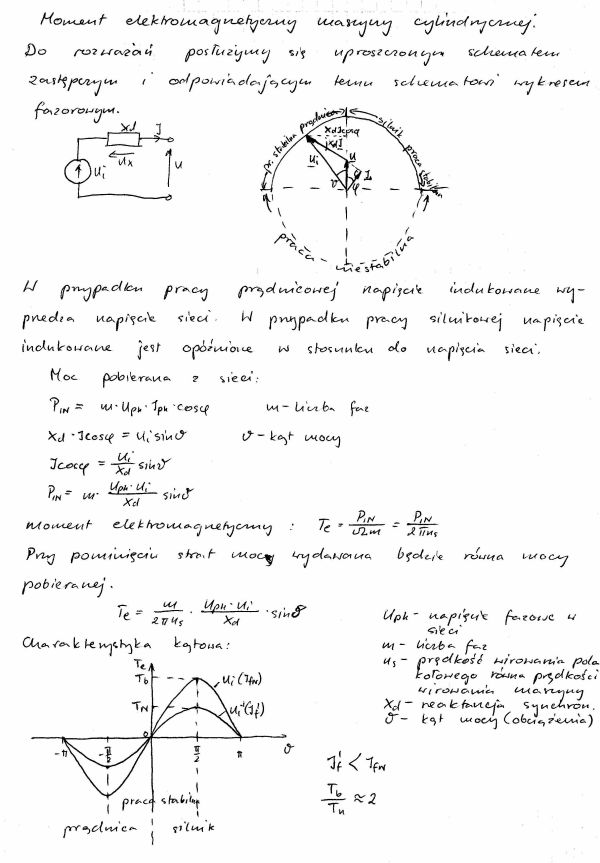 Moment elektromagnetyczny maszyny cylindrycznej.
Do rozważań posłużymy się uproszczonym schematem
zastępczym i odpowiadającym temu schematowi wykresem
fazorowym.
Xd I
Ux
Ui
U
pr. stabilna prądnica
silnik praca stabilna
XdIcosφ
XdI
Ui
U
I
ϑ φ
praca niestabilna
W przypadku pracy prądnicowej napięcie indukowane wy-
przedza napięcie sieci. W przypadku pracy silnikowej napięcie
indukowane jest opóźnione w stosunku do napięcia sieci.
Moc pobierana z sieci:
P_IN = m·Uph·Iph·cosφ m - liczba faz
Xd·Icosφ = Ui sinϑ ϑ - kąt mocy
Icosφ = Ui/Xd sinϑ
P_IN = m· Uph·Ui/Xd sinϑ
moment elektromagnetyczny: Te = P_IN/Ωm = P_IN/2πns
Przy pominięciu strat mocy wydawana będzie równa mocy
pobieranej.
Te = m/2πns · Uph·Ui/Xd · sinϑ
Uph - napięcie fazowe w
sieci
m - liczba faz
ns - prędkość wirowania pola
kołowego równa prędkości
wirowania maszyny
Xd - reaktancja synchron.
ϑ - kąt mocy (obciążenia)
Charakterystyka kątowa:
Te
Tb
Ui(IfN)
TN
Ui'(If')
-π -π/2 0 π/2 π ϑ
praca stabilna
prądnica silnik
If' < IfN
Tb/Tn ≈ 2